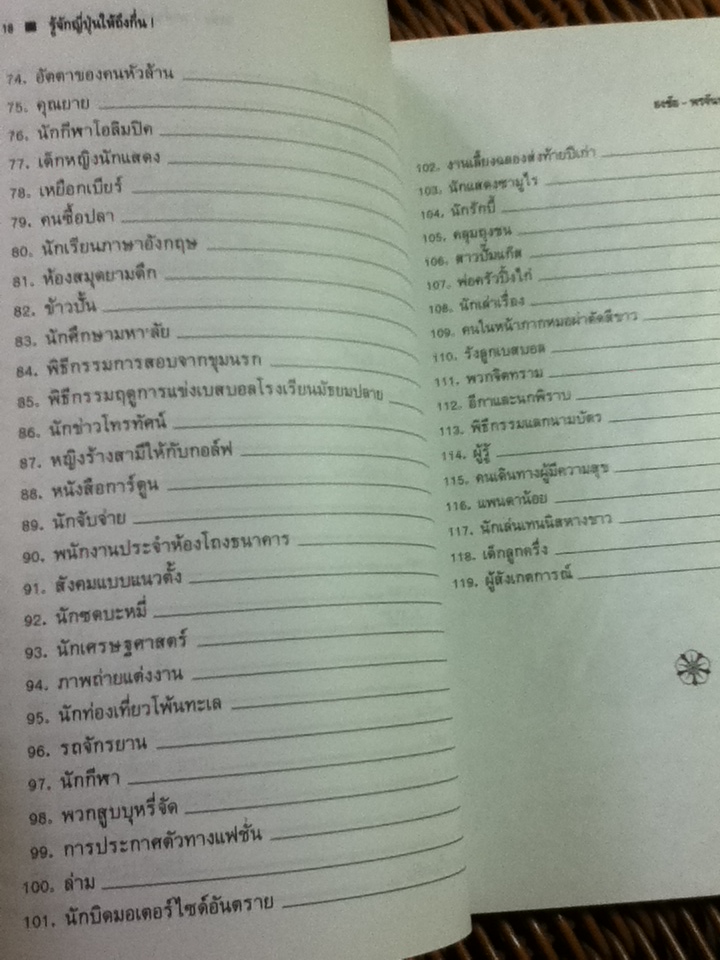 18 ■ รู้จักญี่ปุ่นให้ถึงกึ๋น !
74. อัตตาของคนหัวล้าน
75. คุณยาย
76. นักกีฬาโอลิมปิค
77. เด็กหญิงนักแสดง
78. เหยือกเบียร์
79. คนซื้อปลา
80. นักเรียนภาษาอังกฤษ
81. ห้องสมุดยามดึก
82. ข้าวปั้น
83. นักศึกษามหา'ลัย
84. พิธีกรรมการสอบจากขุมนรก
85. พิธีกรรมฤดูการแข่งเบสบอลโรงเรียนมัธยมปลาย
86. นักข่าวโทรทัศน์
87. หญิงร้างสามีให้กับกอล์ฟ
88. หนังสือการ์ตูน
89. นักจับจ่าย
90. พนักงานประจำห้องโถงธนาคาร
91. สังคมแบบแนวตั้ง
92. นักซดบะหมี่
93. นักเศรษฐศาสตร์
94. ภาพถ่ายแต่งงาน
95. นักท่องเที่ยวโพ้นทะเล
96. รถจักรยาน
97. นักกีฬา
98. พวกสูบบุหรี่จัด
99. การประกาศตัวทางแฟชั่น
100. ล่าม
101. นักบิดมอเตอร์ไซด์อันตราย
ธงชัย -
102. งานเลี้ยงฉลองส่งท้ายปีเก่า
103. นักแสดงซามูไร
104. นักรักบี้
105. คลุมถุงชน
106. สาวปั๊มแก๊ส
107. พ่อครัวปิ้งไก่
108. นักเล่าเรื่อง
109. คนในหน้ากากหมอผ่าตัดสีขาว
110. รังลูกเบสบอล
111. พวกจิตทราม
112. อีกาและนกพิราบ
113. พิธีกรรมแลกนามบัตร
114. ผู้รู้
115. คนเดินทางผู้มีความสุข
116. แพนดาน้อย
117. นักเล่นเทนนิสหางขาว
118. เด็กลูกครึ่ง
119. ผู้สังเกตการณ์